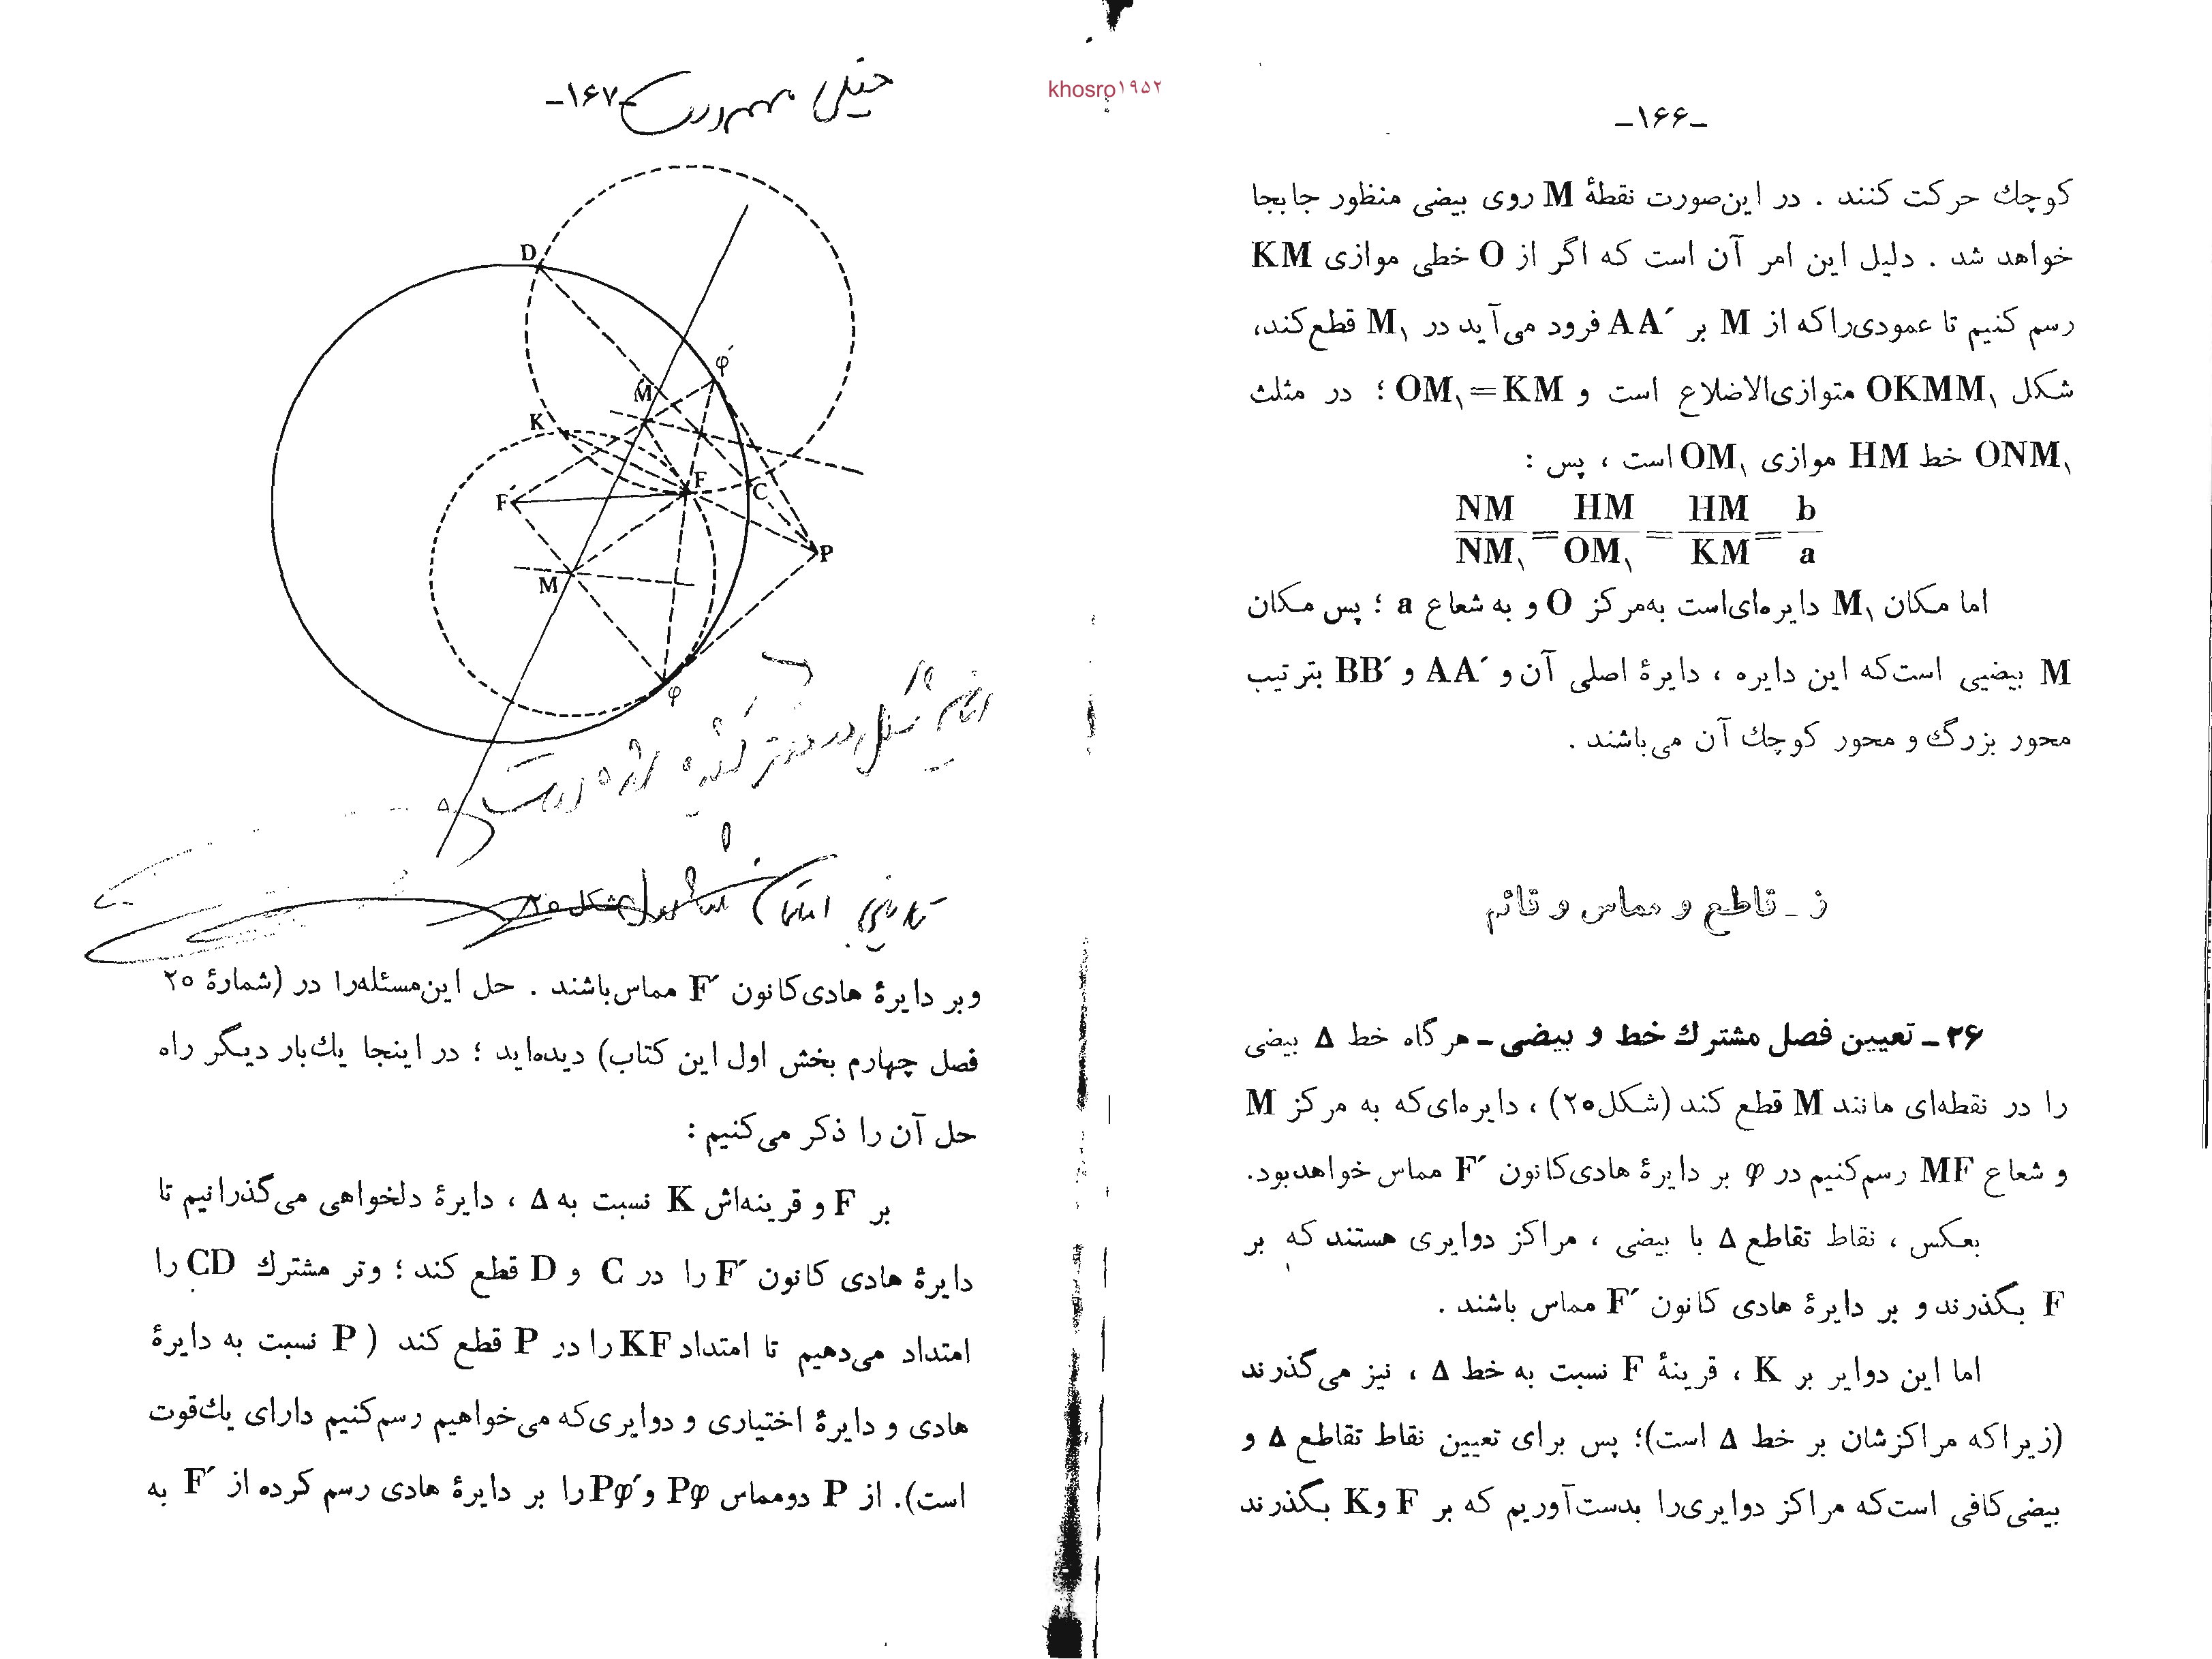 khosro۱۹۵۲
-۱۶۶-
کوچك حرکت کنند . در این‌صورت نقطهٔ M روی بیضی منظور جابجا
خواهد شد . دلیل این امر آن است که اگر از O خطی موازی KM
رسم کنیم تا عمودی‌را که از M بر AA′ فرود می‌آید در M۱ قطع کند،
شکل OKMM۱ متوازی‌الاضلاع است و OM۱=KM ؛ در مثلث
ONM۱ خط HM موازی OM۱ است ، پس :
NM/NM۱ = HM/OM۱ = HM/KM = b/a
اما مکان M۱ دایره‌ای‌است به‌مرکز O و به شعاع a ؛ پس مکان
M بیضیی است‌که این دایره ، دایرهٔ اصلی آن و AA′ و BB′ بترتیب
محور بزرگ و محور کوچك آن می‌باشند .
ز - قاطع و مماس و قائم
۲۶ - تعیین فصل مشترك خط و بیضی - هرگاه خط Δ بیضی
را در نقطه‌ای مانند M قطع کند (شکل۲۰) ، دایره‌ای‌که به مرکز M
و شعاع MF رسم‌کنیم در φ بر دایرهٔ هادی‌کانون F′ مماس خواهدبود.
بعکس ، نقاط تقاطع Δ با بیضی ، مراکز دوایری هستند که بر
F بگذرند و بر دایرهٔ هادی کانون F′ مماس باشند .
اما این دوایر بر K ، قرینهٔ F نسبت به خط Δ ، نیز می‌گذرند
(زیرا که مراکزشان بر خط Δ است)؛ پس برای تعیین نقاط تقاطع Δ و
بیضی‌کافی است‌که مراکز دوایری‌را بدست‌آوریم که بر F و K بگذرند
-۱۶۷-
خیلی مهم
D
φ′
M′
K
F
F′
C
P
M
φ
شکل ۲۰
وبر دایرهٔ هادی‌کانون F′ مماس‌باشند . حل این‌مسئله‌را در (شمارهٔ ۲۰
فصل چهارم بخش اول این کتاب) دیده‌اید ؛ در اینجا یك‌بار دیگر راه
حل آن را ذکر می‌کنیم :
بر F و قرینه‌اش K نسبت به Δ ، دایرهٔ دلخواهی می‌گذرانیم تا
دایرهٔ هادی کانون F′ را در C و D قطع کند ؛ وتر مشترك CD را
امتداد می‌دهیم تا امتداد KF را در P قطع کند ( P نسبت به دایرهٔ
هادی و دایرهٔ اختیاری و دوایری‌که می‌خواهیم رسم‌کنیم دارای یك‌قوت
است). از P دومماس Pφ و Pφ′ را بر دایرهٔ هادی رسم کرده از F′ به